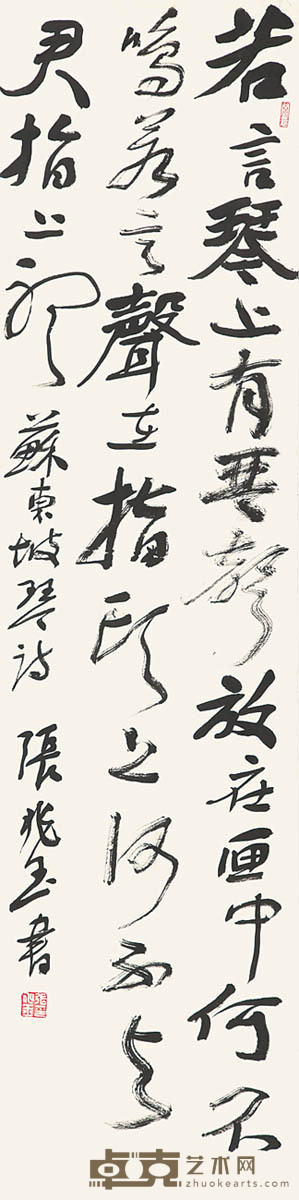 若言琴上有琴聲放在匣中何不
鳴若言聲在指頭上何不与
君指上聽 蘇東坡琴詩 張兆玉書
卓克艺术网
www.zhuokearts.com